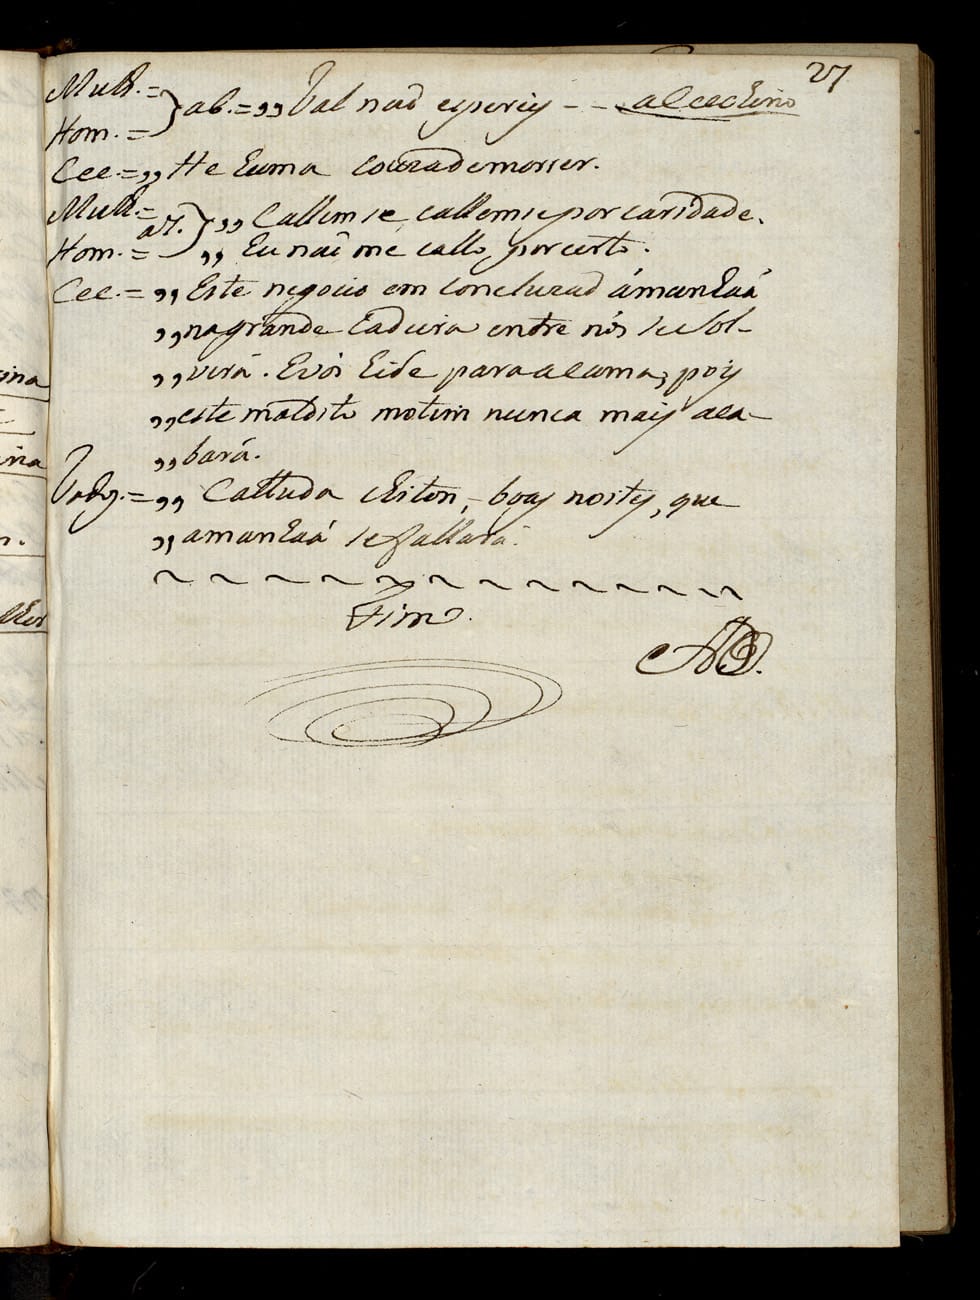 27
Mulh.=
} ab.= „ Tal naõ espereis - - a Cecchino
Hom.=
Cec.= „ He huma couza de morrer.
Mulh.=
a2. } „ Callemse, callemse por caridade.
Hom.= „ Eu naõ me callo, por certo.
Cec.= „ Este negocio em concluzaõ ámanhaá
„ na grande Cadeira entre nós se sol-
„ verá. E vós hide para a cama, pois
„ este maldito motim nunca mais aca-
„ bará.
Todos.= „ Calluda chiton, boas noites, que
„ amanhaá se fallará.
Fim.